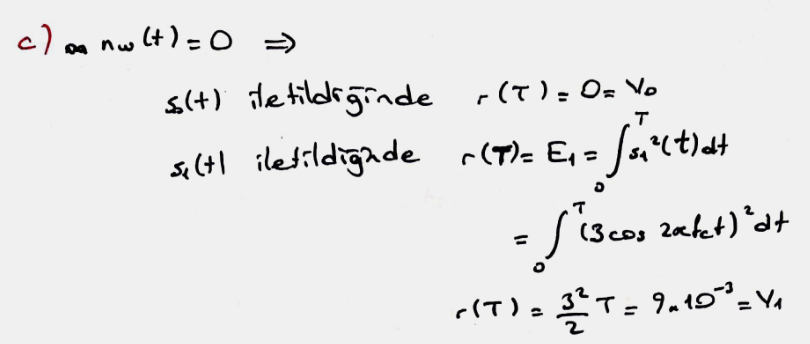 c) n_w(t) = 0 ⇒
s₀(t) iletildiğinde r(T) = 0 = V₀
s₁(t) iletildiğinde r(T) = E₁ = ∫₀ᵀ s₁²(t)dt
= ∫₀ᵀ (3 cos 2πf_ct)² dt
r(T) = 3²/2 T = 9 × 10⁻³ = V₁